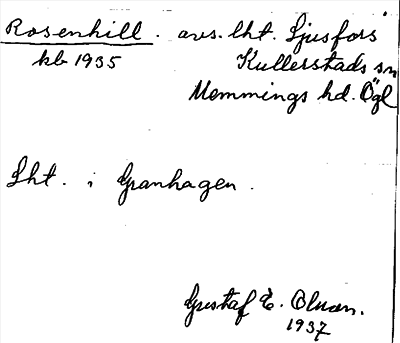 Rosenhill. avs. lht. Ljusfors
kb 1935 Kullerstads sn
Memmings hd. Ögl
Lht. i Granhagen.
Gustaf E.
1937